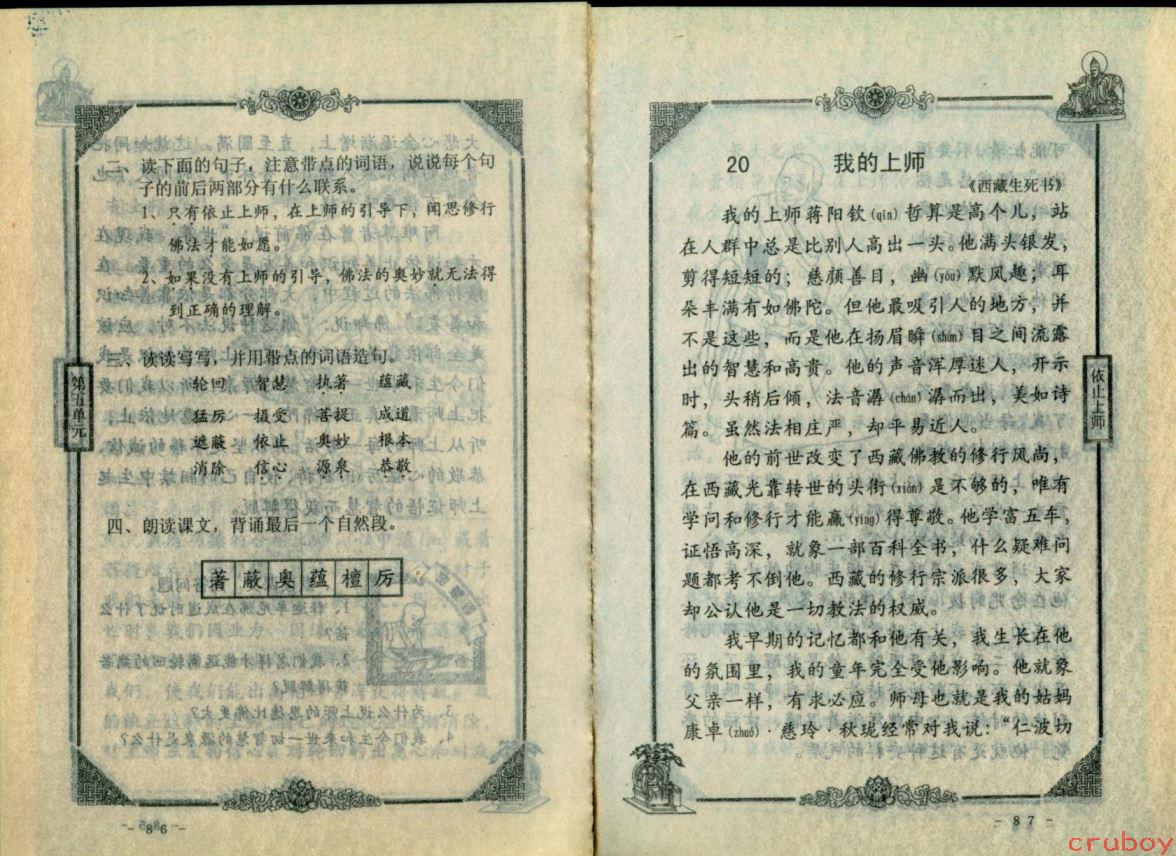 二、读下面的句子，注意带点的词语，说说每个句
子的前后两部分有什么联系。
1、只有依止上师，在上师的引导下，闻思修行
佛法才能如愿。
2、如果没有上师的引导，佛法的奥妙就无法得
到正确的理解。
三、读读写写，并用带点的词语造句。
轮回 智慧 执著 蕴藏
猛厉 摄受 菩提 成道
遮蔽 依止 奥妙 根本
消除 信心 源泉 恭敬
四、朗读课文，背诵最后一个自然段。
著 蔽 奥 蕴 檀 厉
第五单元
- 86 -
20 我的上师
《西藏生死书》
我的上师蒋阳钦(qīn)哲算是高个儿，站
在人群中总是比别人高出一头。他满头银发，
剪得短短的；慈颜善目，幽(yōu)默风趣；耳
朵丰满有如佛陀。但他最吸引人的地方，并
不是这些，而是他在扬眉瞬(shùn)目之间流露
出的智慧和高贵。他的声音浑厚迷人，开示
时，头稍后倾，法音潺(chán)潺而出，美如诗
篇。虽然法相庄严，却平易近人。
他的前世改变了西藏佛教的修行风尚，
在西藏光靠转世的头衔(xián)是不够的，唯有
学问和修行才能赢(yíng)得尊敬。他学富五车，
证悟高深，就象一部百科全书，什么疑难问
题都考不倒他。西藏的修行宗派很多，大家
却公认他是一切教法的权威。
我早期的记忆都和他有关，我生长在他
的氛围里，我的童年完全受他影响。他就象
父亲一样，有求必应。师母也就是我的姑妈
康卓(zhuó)·慈玲·秋珑经常对我说：“仁波切
依止上师
- 87 -
cruboy